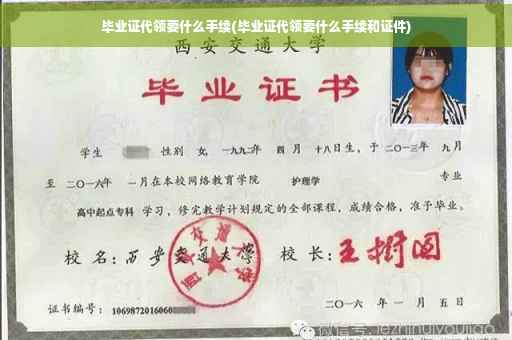 毕业证代领要什么手续(毕业证代领要什么手续和证件)
西安交通大学
毕业证书
学生 性别 女, 一九九二年 四月 十八日生, 于二〇一三年 九月
至 二〇一六年 一月在本校网络教育学院 护理学 专业
高中起点专科 学习, 修完教学计划规定的全部课程, 成绩合格, 准予毕业。
校 名: 西安交通大学 校 长: 王树国
西安交通大学
证书编号: 1069872016060
二〇一六 年 一 月 五 日
微信号: jezhinuiyoujiao